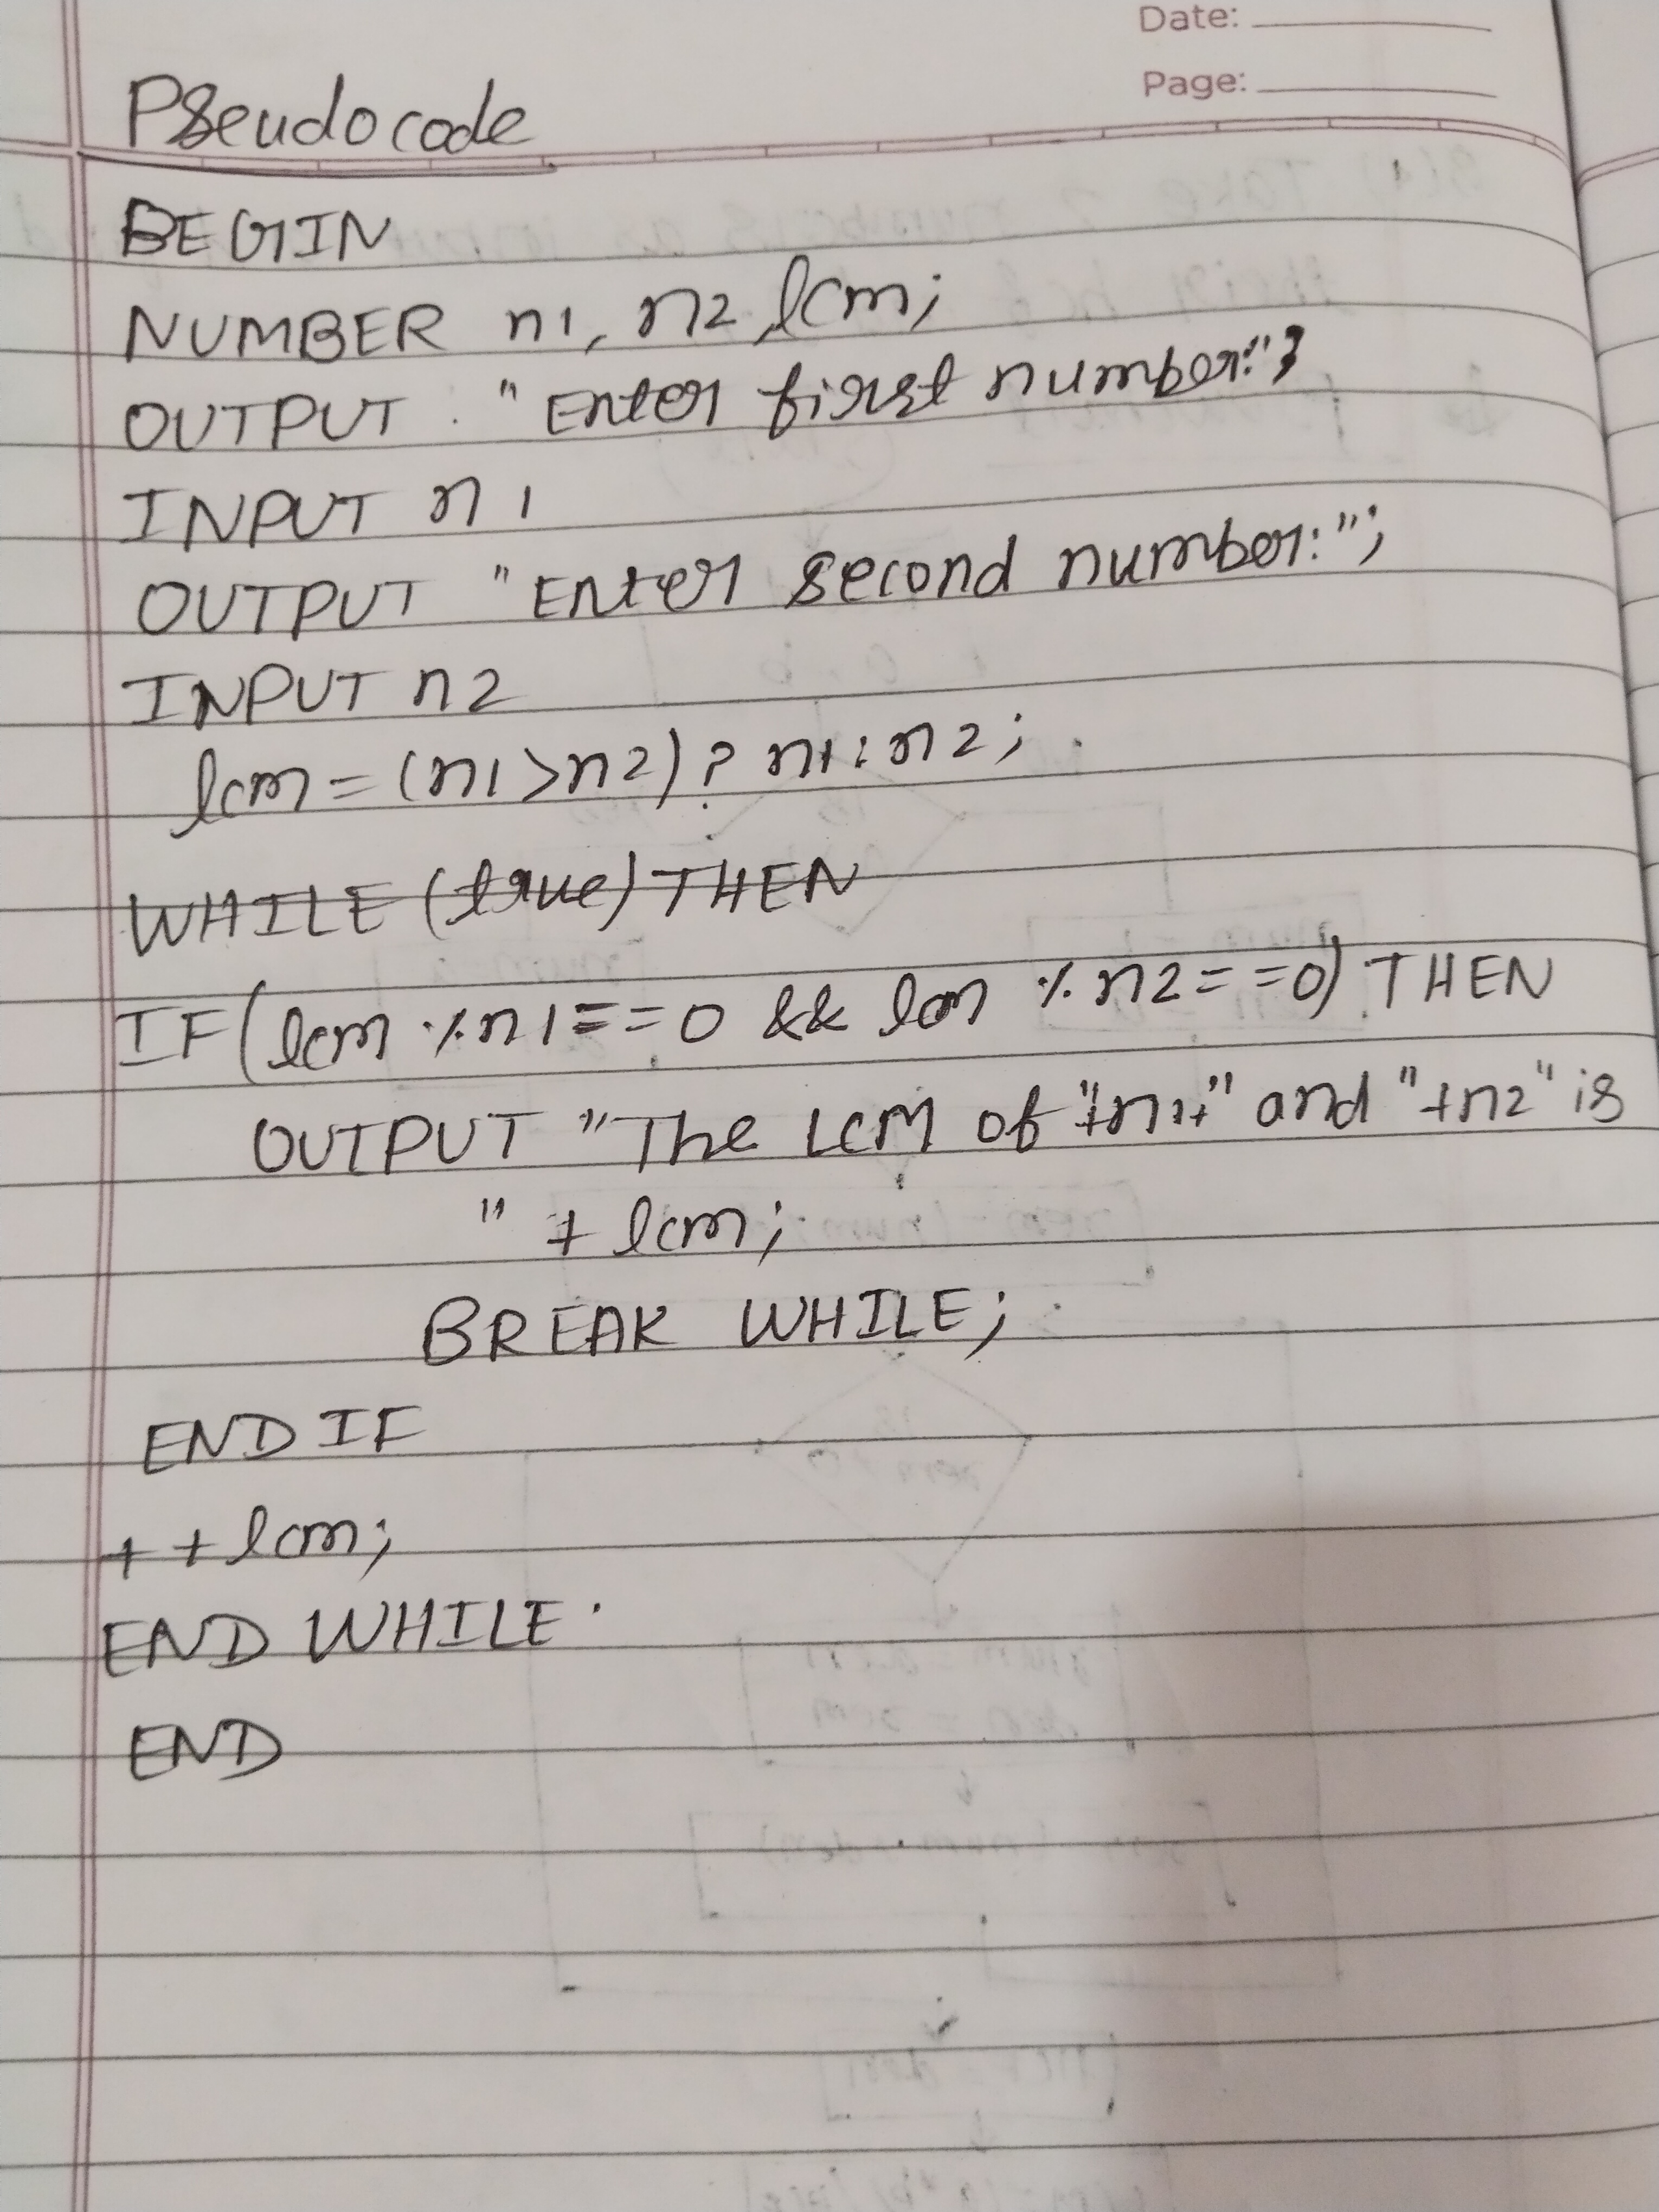 Date:
Page:
Pseudocode
BEGIN
NUMBER n1, n2, lcm;
OUTPUT "Enter first number:";
INPUT n1
OUTPUT "Enter second number:";
INPUT n2
lcm = (n1>n2) ? n1 : n2;
WHILE (true) THEN
IF (lcm % n1 === 0 && lcm % n2 == 0) THEN
OUTPUT "The LCM of "+n1+" and "+n2" is
" + lcm;
BREAK WHILE;
END IF
++lcm;
END WHILE
END